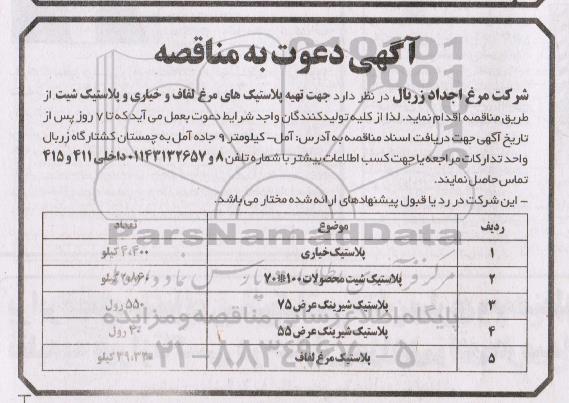 آگهی دعوت به مناقصه
شرکت مرغ اجداد زربال در نظر دارد جهت تهیه پلاستیک های مرغ لفاف و خیاری و پلاستیک شیت از
طریق مناقصه اقدام نماید. لذا از کلیه تولیدکنندگان واجد شرایط دعوت بعمل می آید که تا ۷ روز پس از
تاریخ آگهی جهت دریافت اسناد مناقصه به آدرس: آمل- کیلومتر ۹ جاده آمل به چمستان کشتارگاه زربال
واحد تدارکات مراجعه یا جهت کسب اطلاعات بیشتر با شماره تلفن ۸ و ۰۱۱۴۳۱۳۲۶۵۷ داخلی ۴۱۱ و ۴۱۵
تماس حاصل نمایند.
- این شرکت در رد یا قبول پیشنهادهای ارائه شده مختار می باشد.
ردیف موضوع تعداد
۱ پلاستیک خیاری ۴،۴۰۰ کیلو
۲ پلاستیک شیت محصولات ۱۰۰*۷۰ کیلو
۳ پلاستیک شیرینگ عرض ۷۵ ۵۵۰ رول
۴ پلاستیک شیرینگ عرض ۵۵ رول
۵ پلاستیک مرغ لفاف کیلو
ParsNamadData
پایگاه اطلاع رسانی مناقصه و مزایده
۰۲۱-۸۸۳۴۹۶۷۰-۵